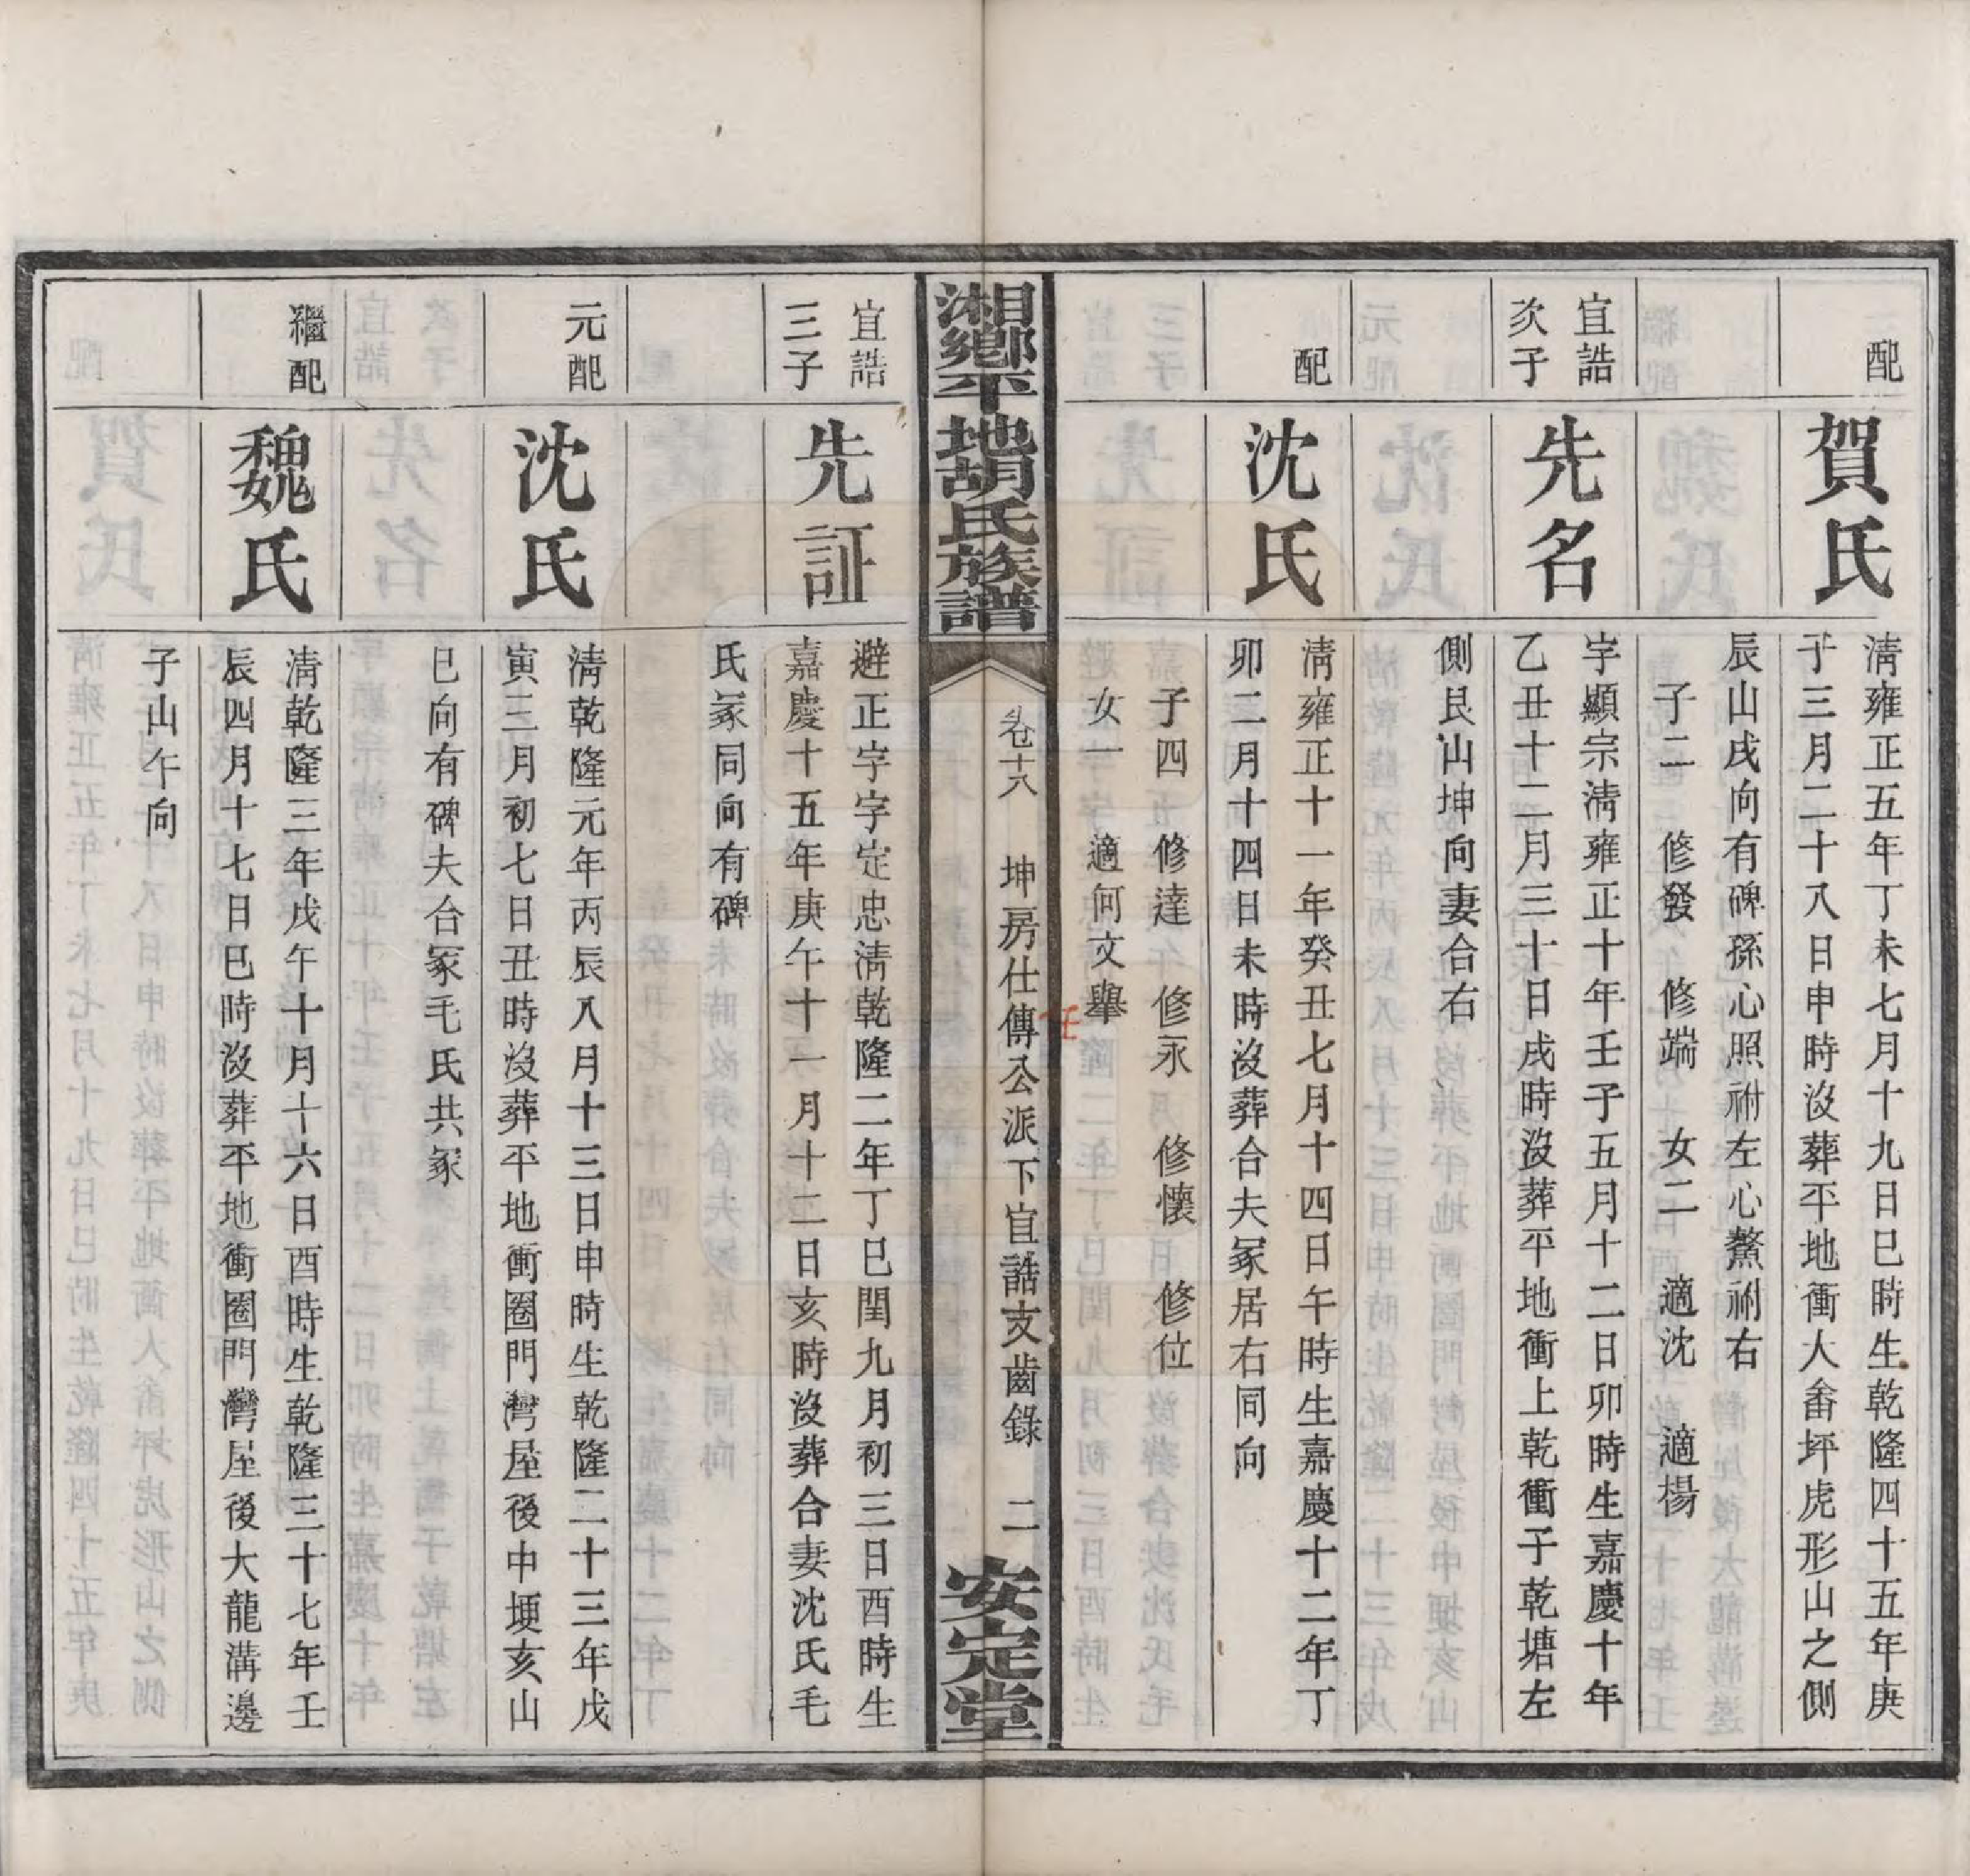 配
賀氏
清雍正五年丁未七月十九日巳時生乾隆四十五年庚
子三月二十八日申時沒葬平地衝人畬坪虎形山之側
辰山戌向有碑孫心照祔左心驁祔右
子二 修發 修端 女二 適沈 適楊
宜誥
次子
先名
字顯宗清雍正十年壬子五月十二日卯時生嘉慶十年
乙丑十二月三十日戌時沒葬平地衝上乾衝子乾塘左
側艮山坤向妻合右
配
沈氏
清雍正十一年癸丑七月十四日午時生嘉慶十二年丁
卯二月十四日未時沒葬合夫冢居右同向
子四 修達 修永 修懷 修位
女一 適何文舉
任
湘鄉平地胡氏族譜
卷十八 坤房仕傳公派下宜誥支齒錄 二
安定堂
宜誥
三子
先証
避正字字定忠清乾隆二年丁巳閏九月初三日酉時生
嘉慶十五年庚午十一月十二日亥時沒葬合妻沈氏毛
氏冢同向有碑
元配
沈氏
清乾隆元年丙辰八月十三日申時生乾隆二十三年戊
寅三月初七日丑時沒葬平地衝圈門灣屋後中埂亥山
巳向有碑夫合冢毛氏共冢
繼配
魏氏
清乾隆三年戊午十月十六日酉時生乾隆三十七年壬
辰四月十七日巳時沒葬平地衝圈門灣屋後大龍溝邊
子山午向